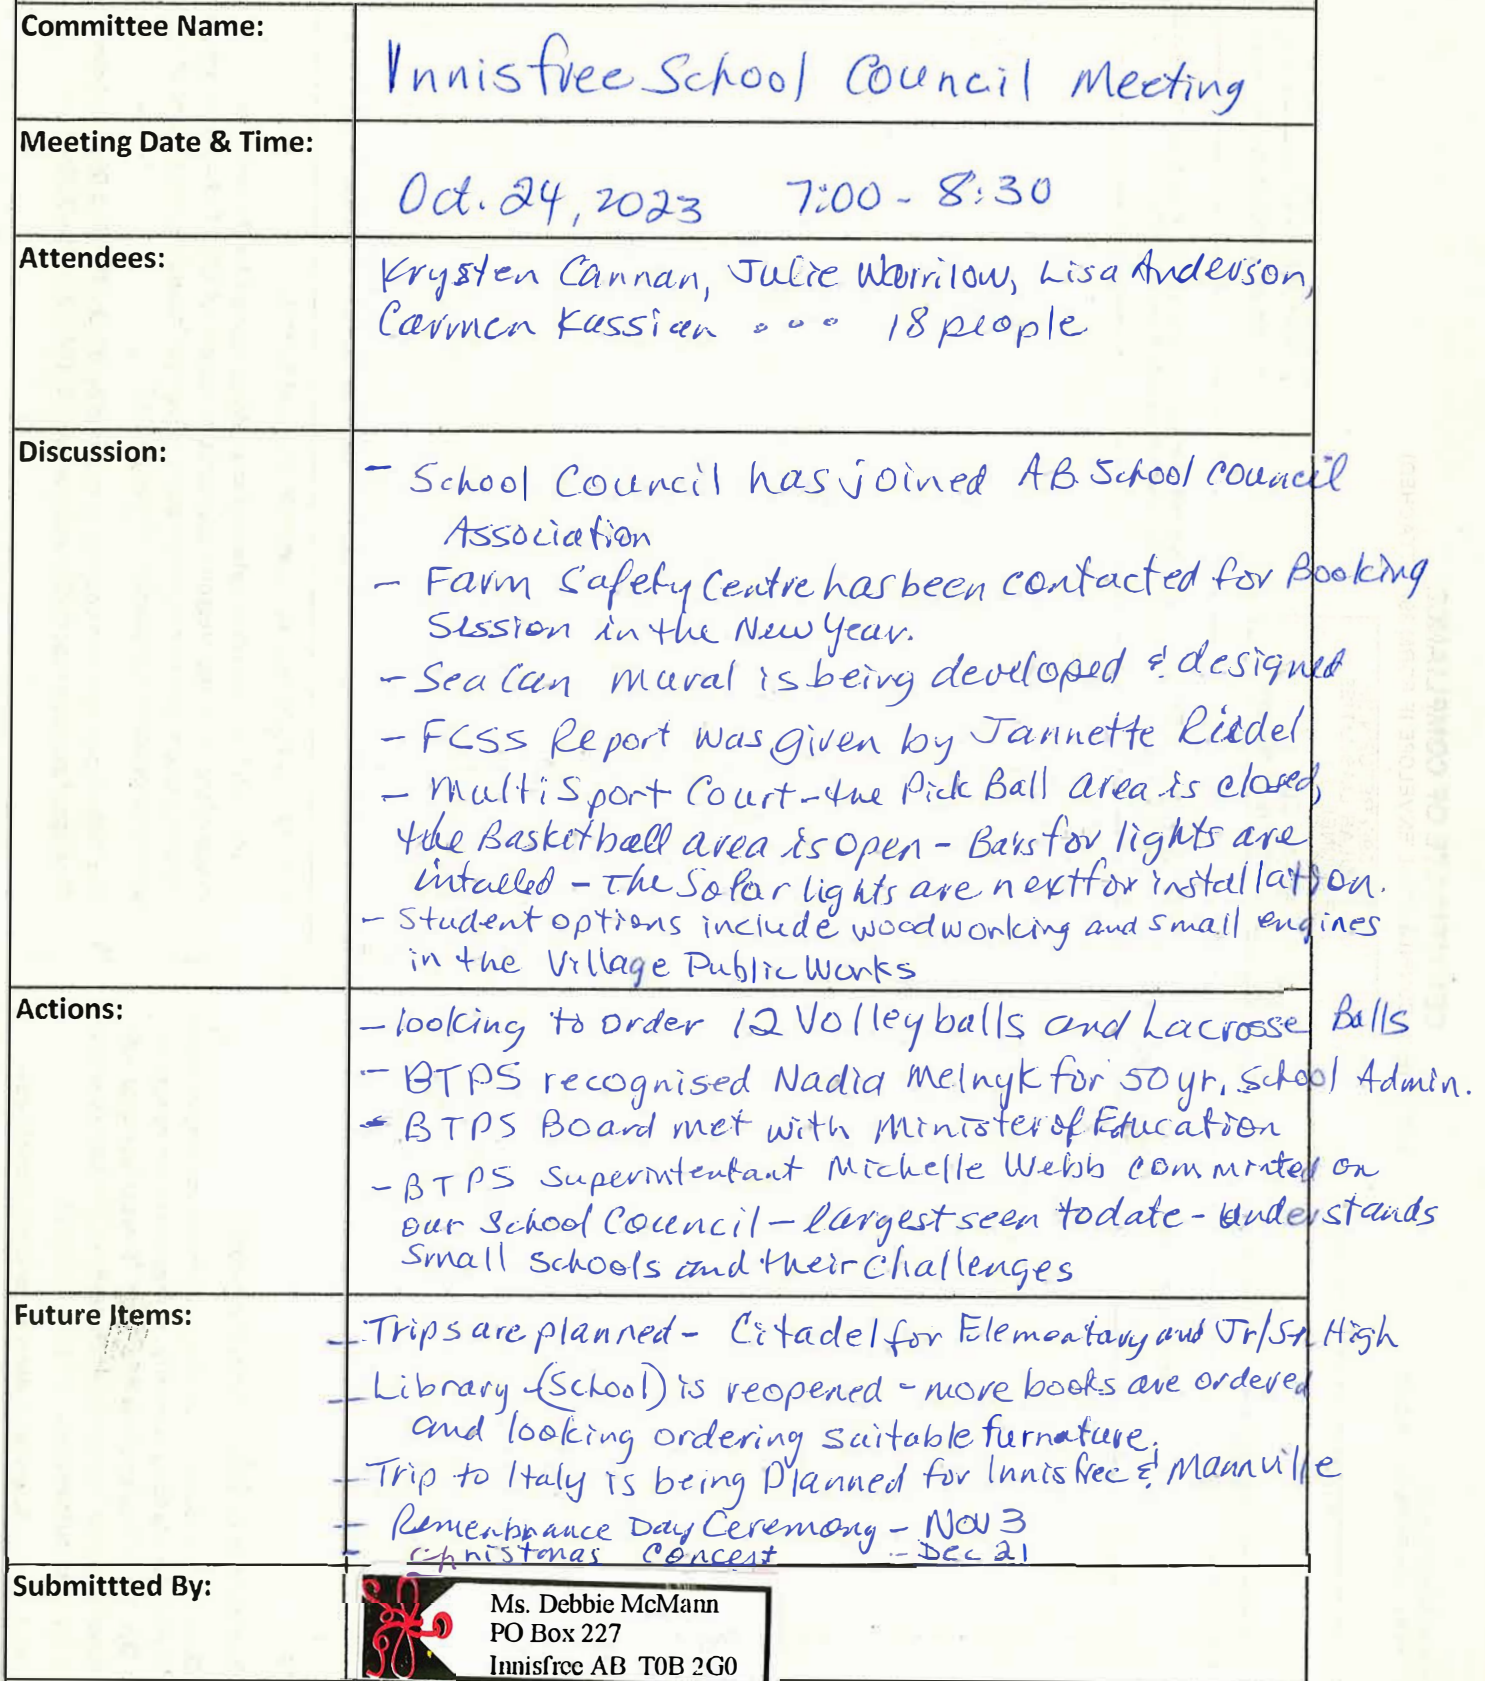 Committee Name:
Innisfree School Council Meeting
Meeting Date & Time:
Oct. 24, 2023 7:00 - 8:30
Attendees:
Krysten Cannan, Julie Warrilow, Lisa Anderson,
Carmen Kassian ... 18 people
Discussion:
- School Council has joined AB School Council
Association
- Farm Safety Centre has been contacted for Booking
Session in the New Year.
- Sea Can mural is being developed & designed
- FCSS Report was given by Jannette Riedel
- Multi Sport Court - the Pick Ball area is closed,
the Basketball area is open - Bars for lights are
intalled - The Solar lights are next for installation.
- Student options include woodworking and small engines
in the Village Public Works
Actions:
- looking to order 12 Volleyballs and Lacrosse Balls
- BTPS recognised Nadia Melnyk for 50 yr. School Admin.
- BTPS Board met with Minister of Education
- BTPS Superintentant Michelle Webb commented on
our School Council - largest seen to date - understands
Small Schools and their Challenges
Future Items:
- Trips are planned - Citadel for Elementary and Jr/Sr High
- Library (School) is reopened - more books are ordered
and looking ordering suitable furnature.
- Trip to Italy is being Planned for Innisfree & Mannville
- Remembrance Day Ceremony - Nov 3
- Christmas Concert - Dec 21
Submittted By:
Ms. Debbie McMann
PO Box 227
Innisfree AB T0B 2G0